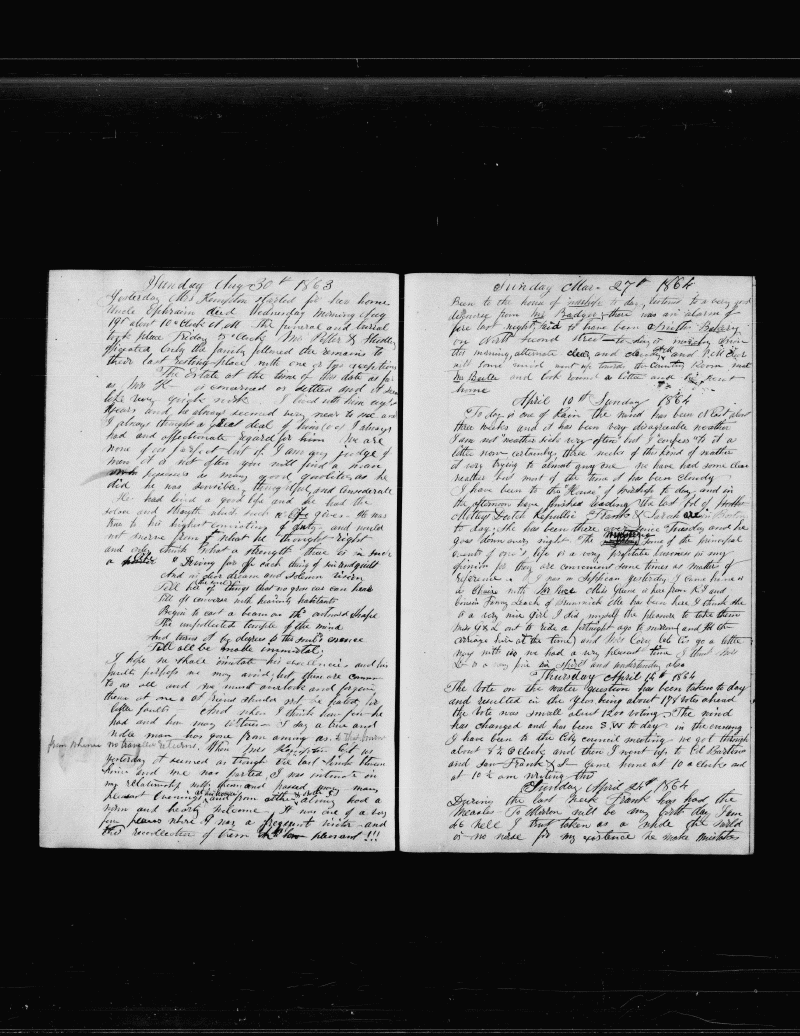 Sunday Aug 30th 1863
Yesterday Mrs Kempton started for her home
Uncle Ephraim died Wednesday morning Aug
19th about 10 o'clock at M. The funeral and burial
took place Friday 3 o'clock Mrs
officiated Only the family followed the remains to
their last resting place with one or two exceptions
The estate at the time of this date as far
as is concerned is settled and it seems
like very quick work. I lived with him eight
years and he always seemed very near to me and
I always thought a great deal of him & I always
had and affectionate regard for him We are
none of us perfect but if I am any judge of
men it is not often you will find a man
possesses so many good qualities as he
did he was sensible, thoughtful, and considerate
He had lived a good life and he had the
solace and strength which such a life gives. He was
true to his highest convictions of duty and would
not swerve from what he thought right
and only think what a strength there is in such
a life "Driving far off each thing of sin and guilt
And in clear dream and solemn vision
Tell her of things that no gross ear can hear
Till oft converse with heavenly habitants
Begin to cast a beam on the outward shape
The unpolluted temple of the mind
And turns it by degrees to the soul's essence
Till all be made immortal;
I hope we shall imitate his excellencies and his
faults perhaps we may avoid, but they are common
to us all and we must overlook and forgive
them at once a friend should not be hated for
little faults And when I think how few he
had and how many virtues I say a true and
noble man has gone from among us to that bourn
from whence no traveller returns. When Mrs Kempton left us
yesterday it seemed as though the last link between
him and me was parted. I was intimate in
my relationship with them and passed many
pleasant evenings at his house and from either always had a
warm and hearty welcome. It was one of a very
few places where I was a frequent visitor and
the recollection of them is pleasant!!!
Sunday Mar 27th 1864
Been to the house of worship to day, listened to a very good
discourse from Mr Badger there was an alarm of
fire last night said to have been a Bakery
on North Second street to day is
this morning, alternate clear and cloudy
will some went up towards the Country Room met
Mr Butler and took round a little and went
home
April 10th Sunday 1864
To day is one of Rain the wind has been N East about
three weeks and it has been very disagreeable weather
I am not "weather sick very often" but I confess to it a
little now certainly, three weeks of this kind of weather
is very trying to almost any one we have had some clear
weather but most of the time it has been cloudy
I have been to the House of worship to day and in
the afternoon have finished reading the last vol of
Motleys Dutch Republic Frank & Sarah are in
to day: She has been there ever since Tuesday and he
goes down every night The of the principal
events of one's life is a very profitable business in my
opinion for they are convenient some times as matters of
reference. I was in Seppican yesterday I came home in
a Chaise with Mr Miss Greene is here from R I and
Cousin Fanny Leach of She has been here I think she
is a very nice girl I did myself the pleasure to take them
Miss G & L out to ride a fortnight ago to
carriage here at the time) and Miss Cory, Lob to go a little
way with us we had a very pleasant time I think Miss
L is a very fine in Spirit and understanding also
Thursday April 14th 1864
The vote on the water question has been taken to day
and resulted in the Yeas being about 178 votes ahead
the vote was small about 1200 voting. The wind
has changed and has been S.W to day. in the evening
I have been to the City council meeting we got through
about 8 1/2 o'clock and then I went up to Ed
and saw Frank & I came home at 10 o'clock and
at 10 1/2 am writing this
Sunday April 24th 1864
During the last week Frank has had the
Measles To morrow will be my birth day I am
46 well I trust taken as a whole the world
is no worse for my existence we make mistakes